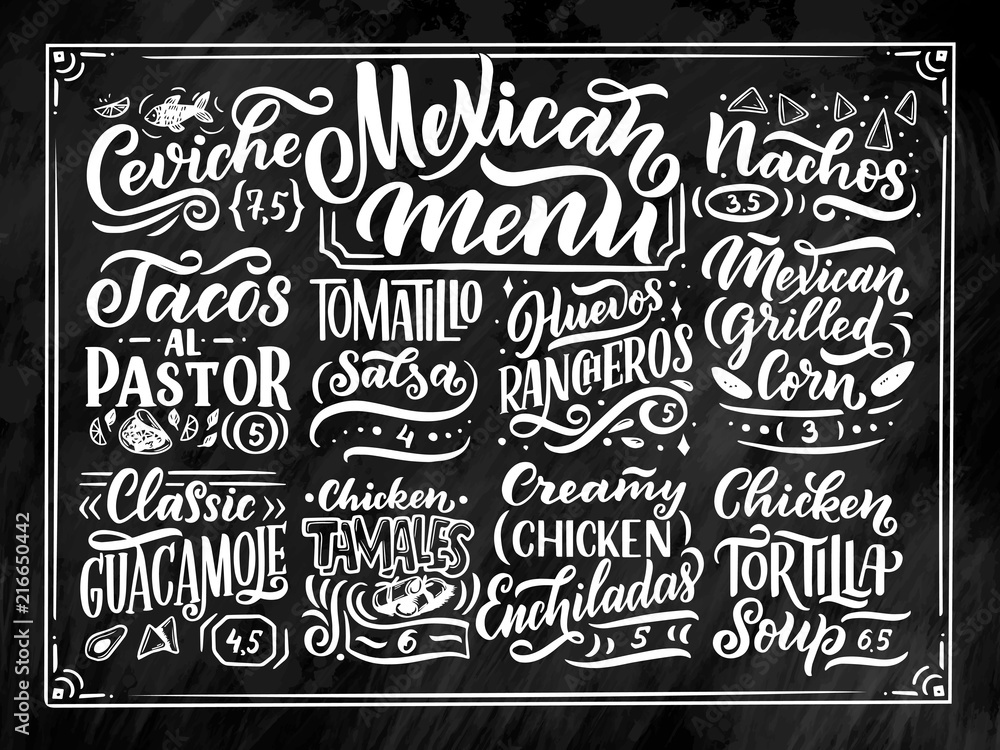 Mexican
Menu
Ceviche
{7,5}
Nachos
3,5
Tacos
AL
PASTOR
5
TOMATILLO
(Salsa)
4
Huevos
RANCHEROS
5
Mexican
(Grilled)
Corn
3
«Classic»
GUACAMOLE
4,5
Chicken
TAMALES
6
Creamy
(CHICKEN)
Enchiladas
5
Chicken
TORTILLA
Soup 6.5
Adobe Stock | #216650442
Adobe Stock